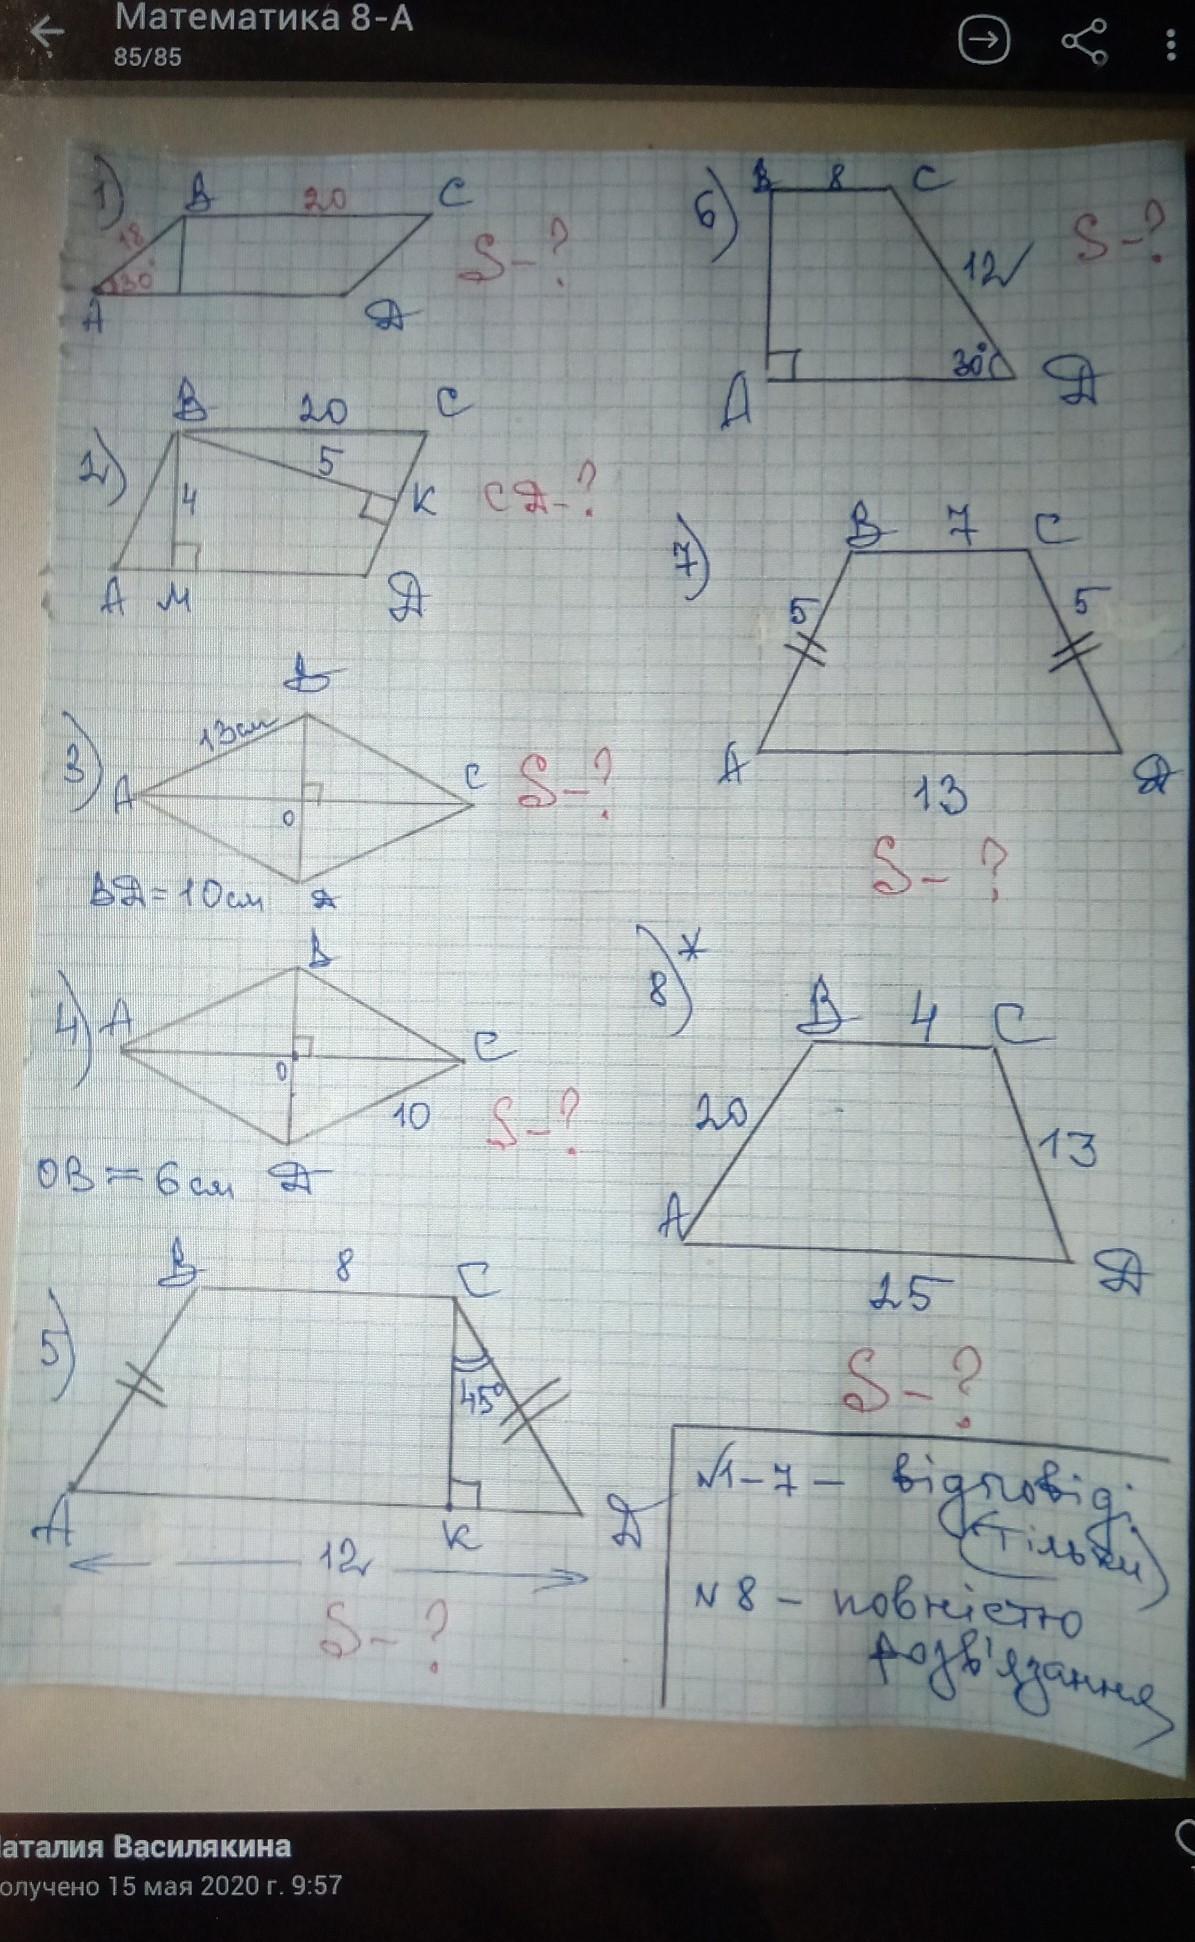 Математика 8-А
85/85
1)
B 20 C
18
30°
A Д
S-?
2)
B 20 C
5
4
K
A M Д
CД-?
3)
B
13см
A C
O
S-?
BД=10см Д
4)
B
A C
O
10
S-?
OB=6см Д
5)
B 8 C
45°
A K Д
12
S-?
6)
B 8 C
12
S-?
30°
A Д
7)
B 7 C
5 5
A Д
13
S-?
8)*
B 4 C
20 13
A Д
25
S-?
N1-7- відповіді
(тільки)
N8- повністю
розв'язання
аталия Василякина
олучено 15 мая 2020 г. 9:57